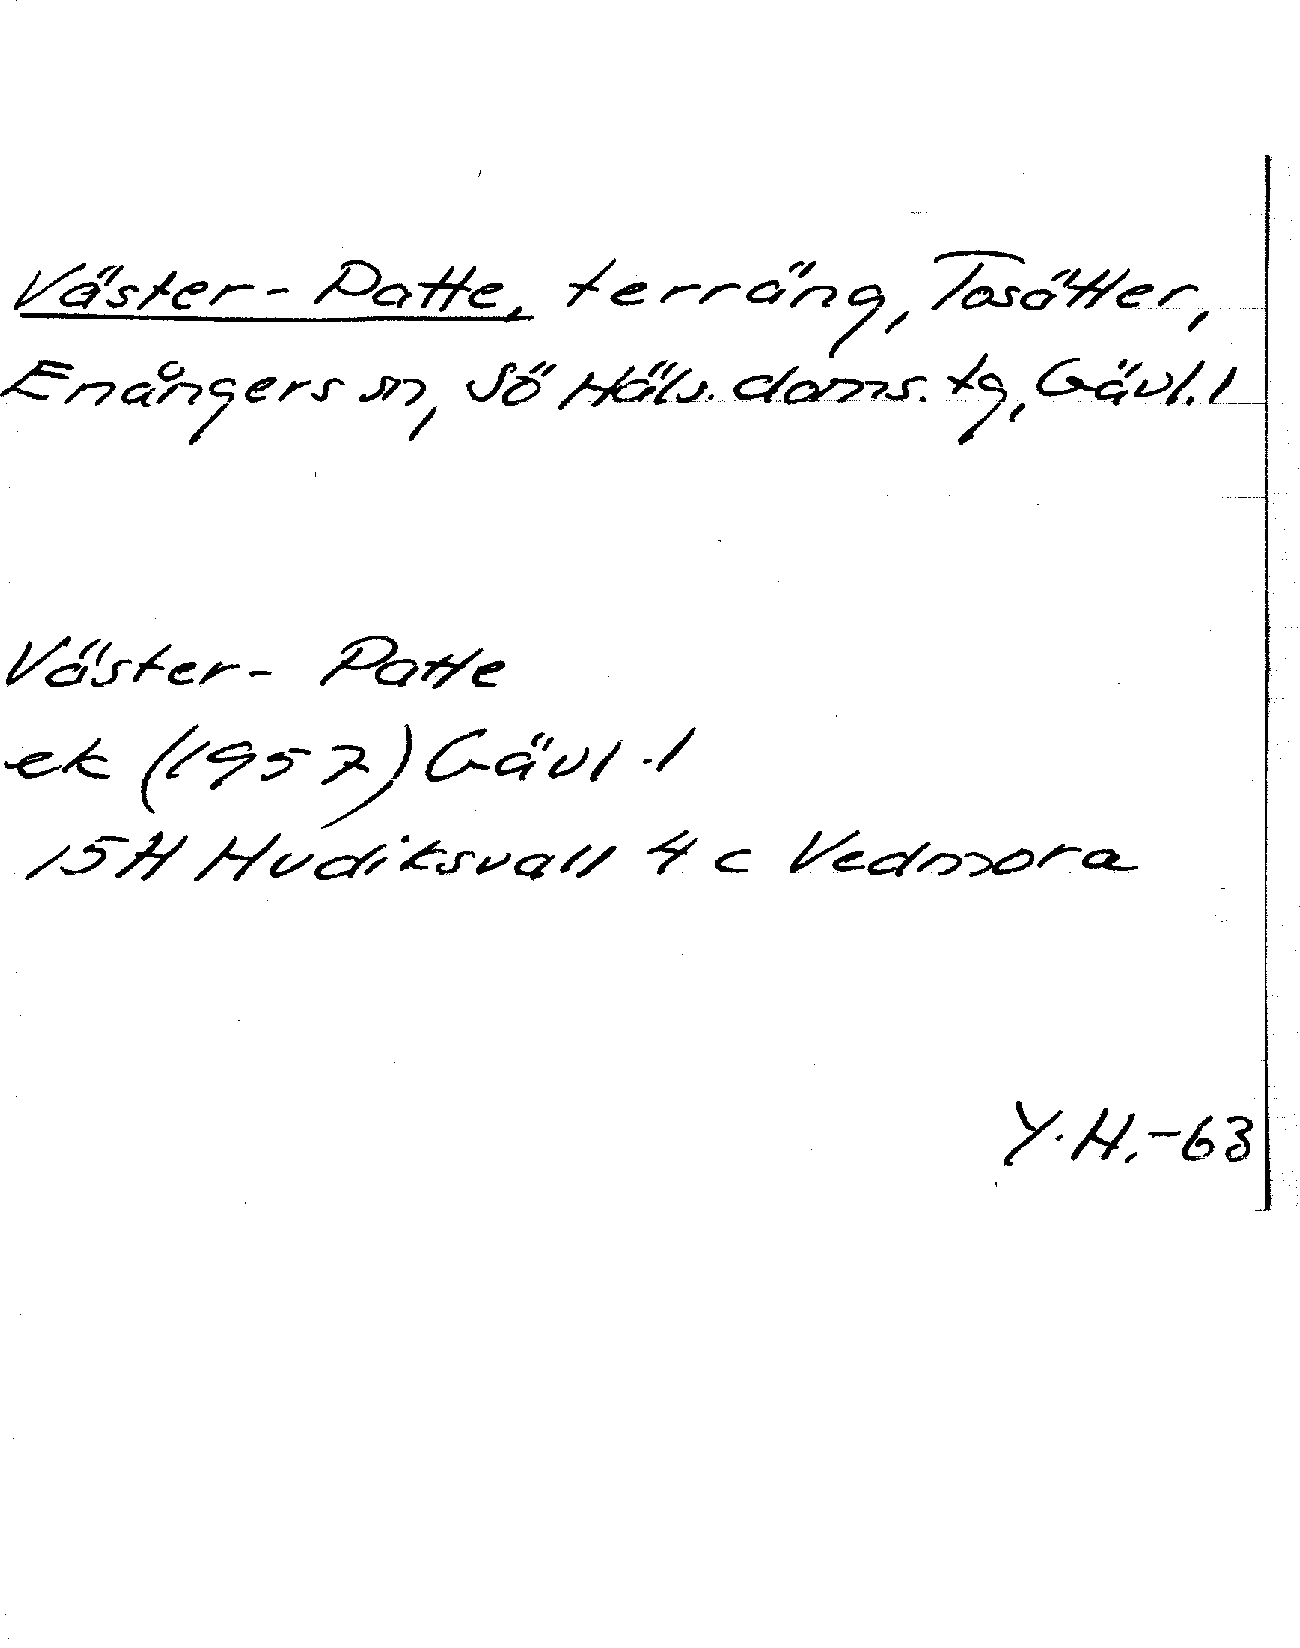 Väster-Patte, terräng, Tosätter,
Enångers sn, Sö Häls. doms. tg, Gävl. l
Väster-Patte
ek (1957) Gävl. l
15H Hudiksvall 4 c Vedmora
Y.H.-63